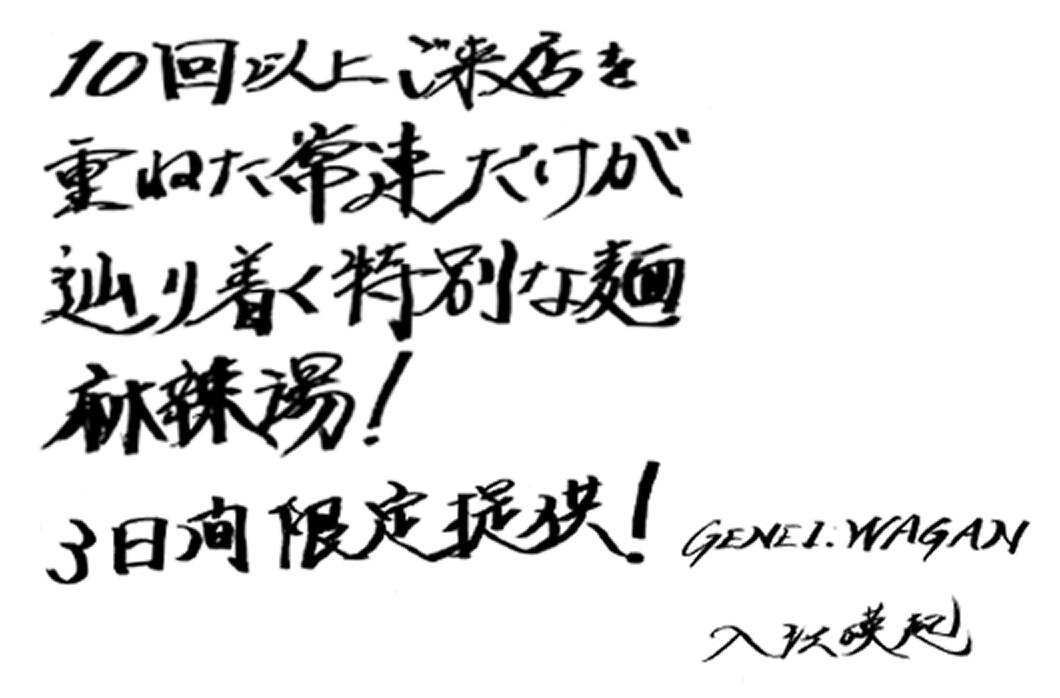 10回以上ご来店を
重ねた常連だけが
辿り着く特別な麺
麻辣湯!
3日間限定提供!
GENEI.WAGAN
入江瑛起